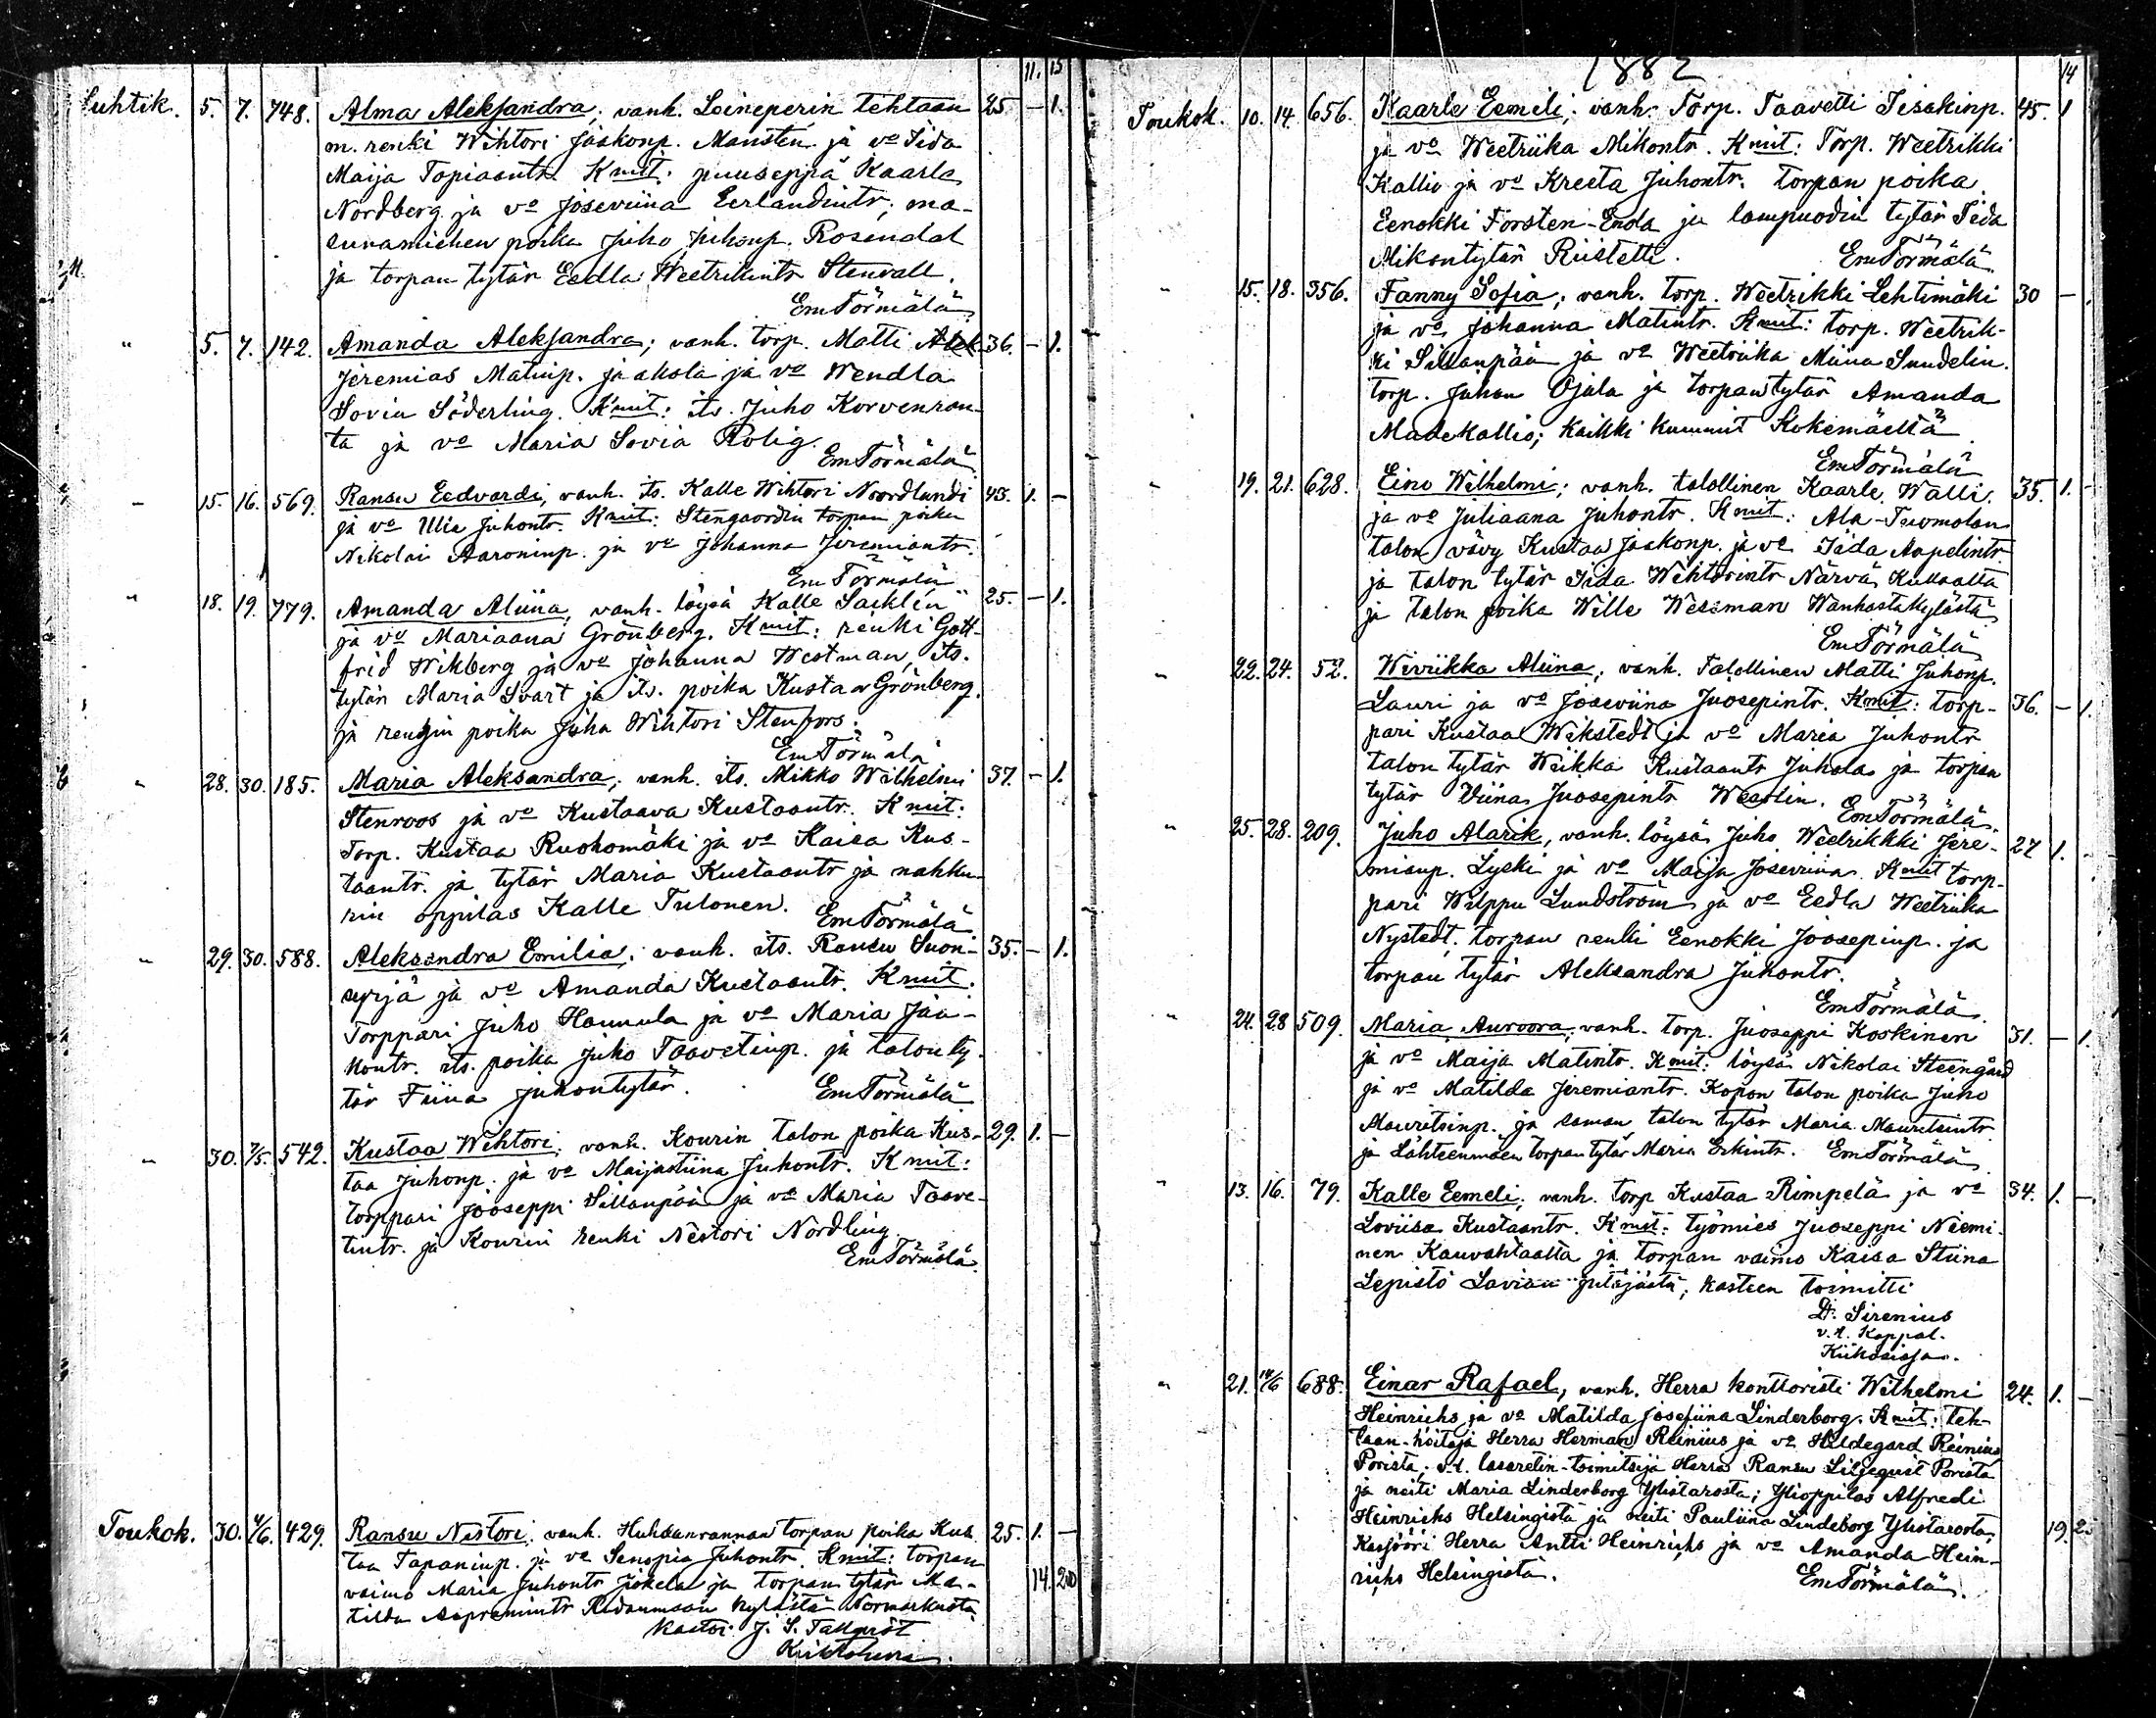 11. 15
Huhtik. 5. 7. 748. Alma Aleksandra; vanh. Leineperin tehtaan 25 — 1.
m. renki Wihtori Jaakonp. Mansten ja vo Iida
Maija Tapiaantr. Kmit: puuseppä Kaarle
Nordberg ja vo Joseviina Eerlandintr; ma-
suunimiehen poika Juho Juhonp. Rosendal
ja torpan tytär Eedla Weetrikintr Stenvall.
Em Törmälä
" 5. 7. 142. Amanda Aleksandra; vanh. torp. Matti 36. — 1.
Jeremias Matinp. Jaakola ja vo Wendla
Sovia Söderling. Kmit: its. Juho Korvenran-
ta ja vo Maria Sovia Rolig.
Em Törmälä
" 15. 16. 569. Ransu Eedvardi, vanh. its. Kalle Wihtori Noordlundi 43. 1. —
ja vo Ulla Juhontr. Kmit: Stengoordin torpan poika
Nikolai Aaroninp. ja vo Johanna Jeremiantr.
Em Törmälä
" 18. 19. 779. Amanda Aliina, vanh. löysä Kalle Sacklén 25. — 1.
ja vo Mariaana Grönberg. Kmit: renki Gott-
frid Wikberg ja vo Johanna Westman, its.
tytär Maria Svart ja its. poika Kustaa Grönberg
ja rengin poika Juha Wihtori Stenfors.
Em Törmälä
" 28. 30. 185. Maria Aleksandra; vanh. its. Mikko Wilhelmi 37. — 1.
Stenroos ja vo Kustaava Kustaantr. Kmit:
Torp. Kustaa Ruohomäki ja vo Kaisa Kus-
taantr. ja tytär Maria Kustaantr ja nahku-
rin oppilas Kalle Tulonen.
Em Törmälä
" 29. 30. 588. Aleksandra Emilia; vanh. its. Ransu Suoni- 35. — 1.
syrjä ja vo Amanda Kustaantr. Kmit.
Torppari Juho Hannula ja vo Maria Jaa-
kontr. its. poika Juho Taavetinp. ja talon ty-
tär Fiina Juhontytär.
Em Törmälä
" 30. 7/5. 542. Kustaa Wihtori; vanh. Kourin talon poika Kus- 29. 1. —
taa Juhonp. ja vo Maijastiina Juhontr. Kmit:
torppari Jooseppi Sillanpää ja vo Maria Taave-
tintr. ja Kourin renki Nestori Nordling.
Em Törmälä
Toukok. 30. 4/6. 429. Ransu Nestori; vanh. Huhdanrannan torpan poika Kus 25. 1. —
taa Tapaninp. ja vo Senopia Juhontr. Kmit: torpan
vaimo Maria Juhontr Jokela ja torpan tytär Ma-
tilda
kylästä Normarkusta
Kastoi J. S. Tallqvist
14. 20
1882
14
Toukok. 10. 14. 656. Kaarle Eemeli; vanh. Torp. Taavetti Iisakinp. 45. 1
ja vo Weetriika Mikontr. Kmit: Torp. Weetrikki
Kallio ja vo Kreeta Juhontr. torpan poika
Eenokki Forsten-Enola ja lampuodin tytär Iida
Mikontytär Riistetti.
Em Törmälä
" 15. 18. 356. Fanny Sofia; vanh. torp. Weetrikki Lehtimäki 30 — 1
ja vo Johanna Matintr. Kmit: torp. Weetrik-
ki Sillanpää ja vo Weetriika Miina Sundelin.
torp. Juhan Ojala ja torpan tytär Amanda
Madekallio; kaikki kummit Kokemäeltä.
Em Törmälä
" 19. 21. 628. Eino Wilhelmi; vanh. talollinen Kaarle Walli. 35. 1. —
ja vo Juliaana Juhontr. Kmit: Ala-Tuomolan
talon vävy Kustaa Jaakonp. ja vo Iida Aapelintr
ja talon tytär Iida Wihtorintr Närvä Kullaalta
ja talon poika Wille Wessman Wanhastakylästä
Em Törmälä
" 22. 24. 52. Wiviikka Aliina; vanh. Talollinen Matti Juhonp.
Lauri ja vo Joseviina Juosepintr. Kmit: torp- 36. — 1.
pari Kustaa Wikstedt ja vo Maria Juhontr
talon tytär Wiikka Kustaantr Juhola ja torpan
tytär Viina Juosepintr Westlin.
Em Törmälä
" 25. 28. 209. Juho Alarik, vanh. löysä Juho Weetrikkki Jere- 27 1. —
mianp. Lyski ja vo Maija Joseviina. Kmit torp-
pari Wilppu Lundström ja vo Eedla Weetriika
Nystedt, torpan renki Eenokki Joosepinp. ja
torpan tytär Aleksandra Juhontr.
Em Törmälä
" 24. 28 509. Maria Auroora; vanh. torp. Juoseppi Koskinen 31. — 1.
ja vo Maija Matintr. Kmit: löysä Nikolai Steengård
ja vo Matilda Jeremiantr. Kopon talon poika Juho
Mauritsinp. ja saman talon tytär Maria Mauritsintr
ja Lähteenmäen torpan tytär Maria Erkintr. Em Törmälä
" 13. 16. 79. Kalle Eemeli; vanh. torp Kustaa Rimpelä ja vo 34. 1. —
Loviisa Kustaantr. Kmit: työmies Juoseppi Niemi-
nen Kauvahtaalta ja torpan vaimo Kaisa Stiina
Lepistö Lavian pitäjästä; kasteen toimitti
D: Sirenius
v.t. Kappal.
Kiikoisissa.
" 21. 14/6 688. Einar Rafael, vanh. Herra konttoristi Wilhelmi 24. 1. —
Heinrichs ja vo Matilda Josefiina Linderborg. Kmit: teh-
taan-hoitaja Herra Herman Reinius ja vo Hildegard Reinius
Porista; v.t. lasaretin-toimitsija Herra Ransu Liljeqvist Porista
ja neiti Maria Linderborg Ylistarosta; Ylioppilas Alfredi
Heinrichs Helsingistä ja neiti Pauliina Lindeborg Ylistarosta,
Kasjööri Herra Antti Heinrichs ja vo Amanda Hein-
richs Helsingistä.
Em Törmälä.
19. 25